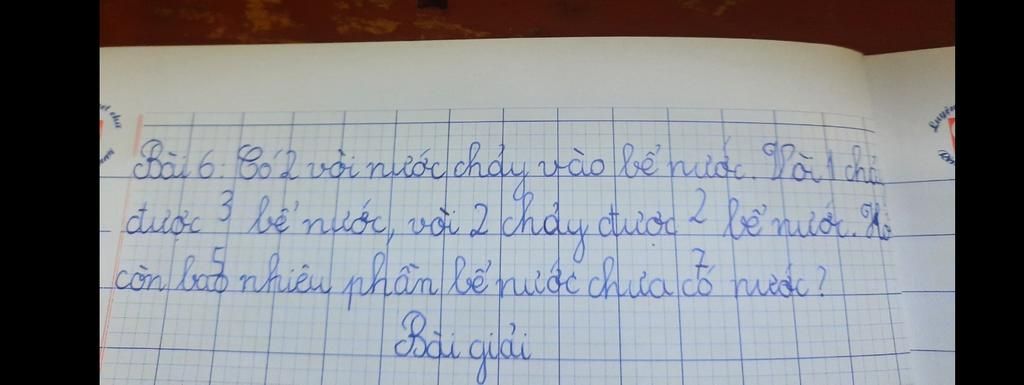 Bài 6: Có 2 vòi nước chảy vào bể nước. Vòi 1 chả
được 3 bể nước, vòi 2 chảy được 2 bể nước. Hỏ
5 7
còn bao nhiêu phần bể nước chưa có nước?
Bài giải